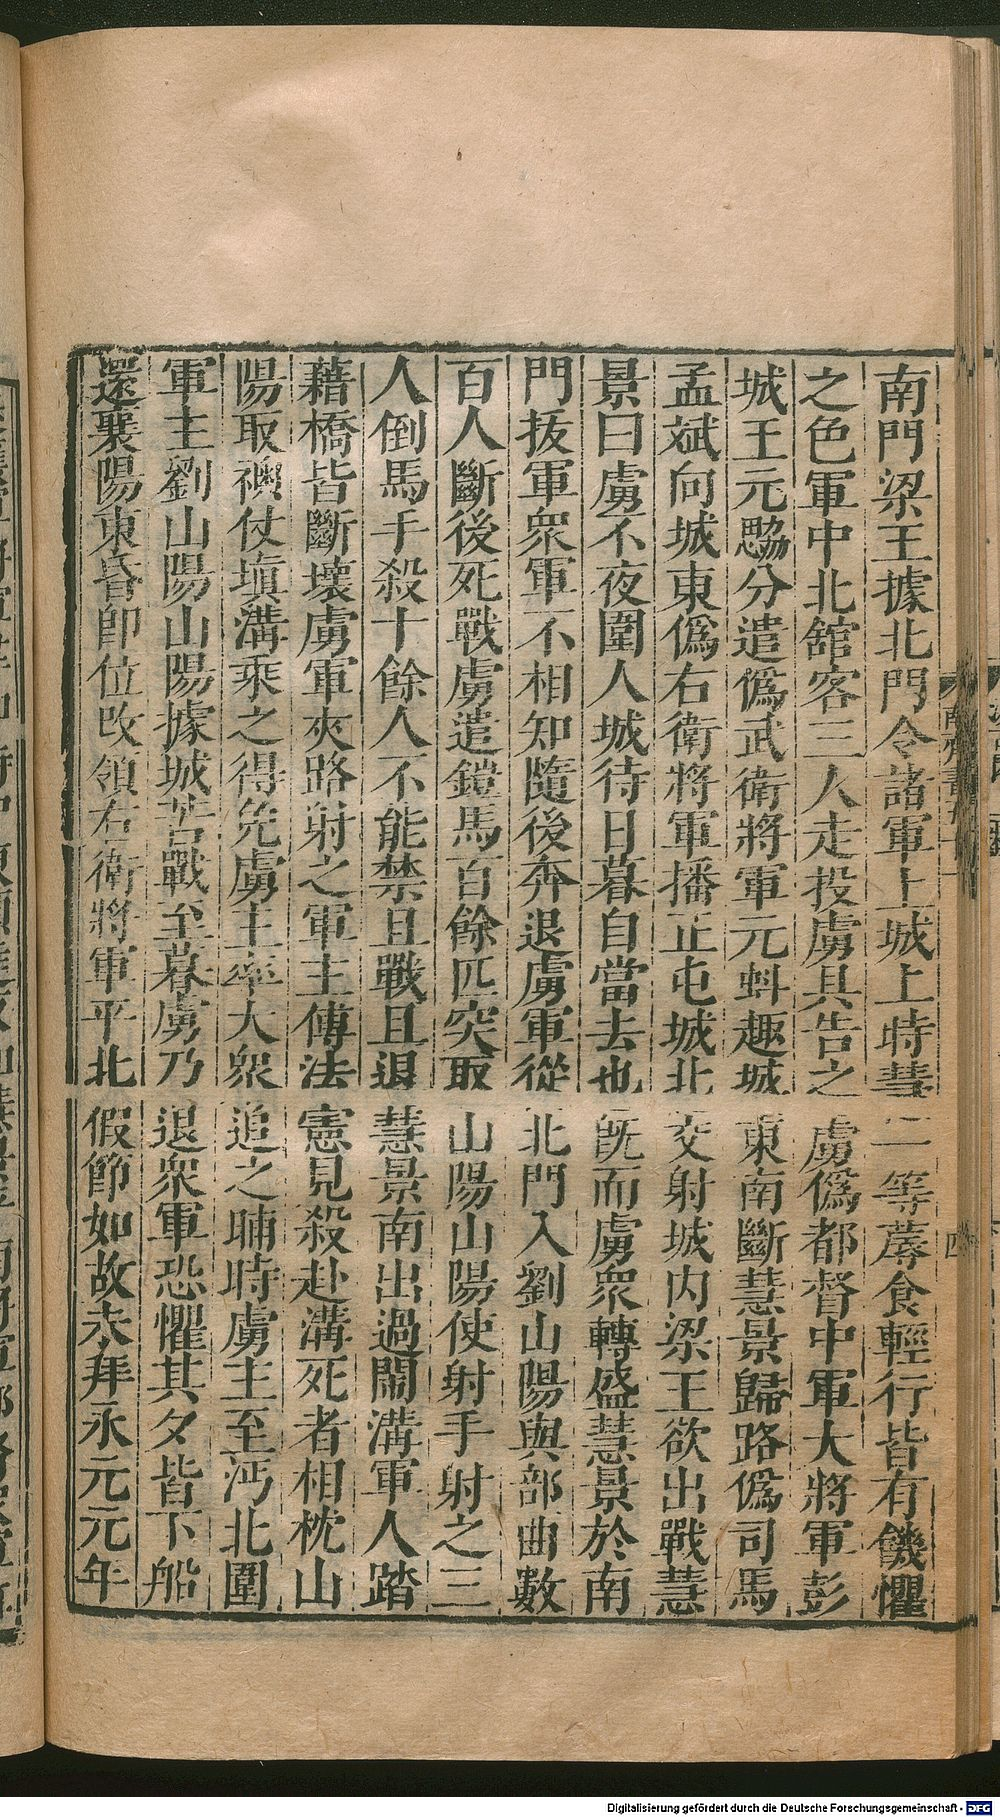 南門梁王據北門令諸軍上城上時慧二等蓐食輕行皆有饑懼
之色軍中北舘客三人走投虜具告之虜僞都督中軍大將軍彭
城王元勰分遣僞武衛將軍元蚪趣城東南斷慧景歸路僞司馬
孟斌向城東僞右衛將軍播正屯城北交射城内梁王欲出戰慧
景曰虜不夜圍人城待日暮自當去也旣而虜衆轉盛慧景於南
門拔軍衆軍不相知隨後奔退虜軍從北門入劉山陽與部曲數
百人斷後死戰虜遣鎧馬百餘匹突取山陽山陽使射手射之三
人倒馬手殺十餘人不能禁且戰且退慧景南出過閙溝軍人踏
藉橋皆斷壞虜軍夾路射之軍主傅法憲見殺赴溝死者相枕山
陽取襖仗塡溝乘之得免虜主率大衆追之晡時虜主至沔北圍
軍主劉山陽山陽據城苦戰至暮虜乃退衆軍恐懼其夕皆下船
還襄陽東昏卽位改領右衛將軍平北假節如故未拜永元元年
四
Digitalisierung gefördert durch die Deutsche Forschungsgemeinschaft - DFG